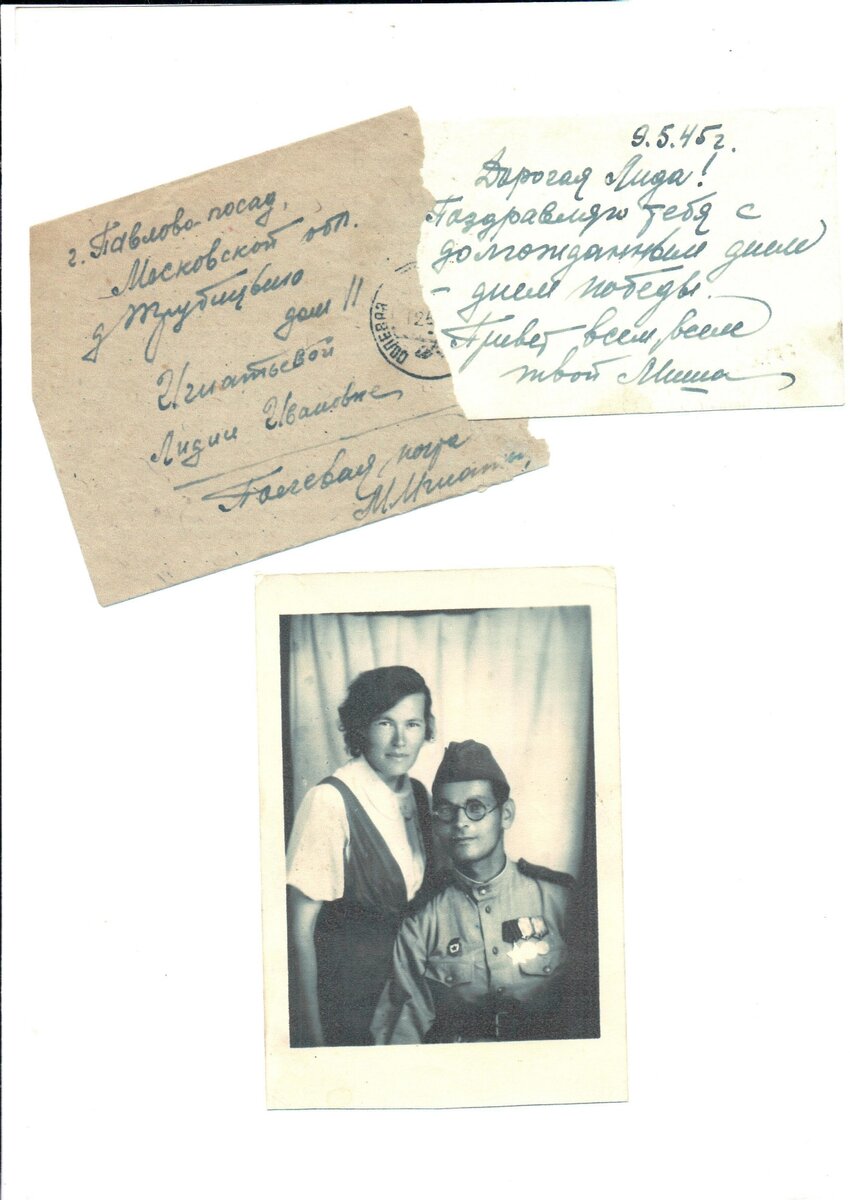 г. Павлово-посад,
Московской обл.
д Трубицыно
дом 11
Игнатьевой
Лидии Ивановне
Полевая почта
ПОЛЕВАЯ
9.5.45г.
Дорогая Лида!
Поздравляю тебя с
долгожданным днем
- днем победы.
Привет всем, всем
твой Миша